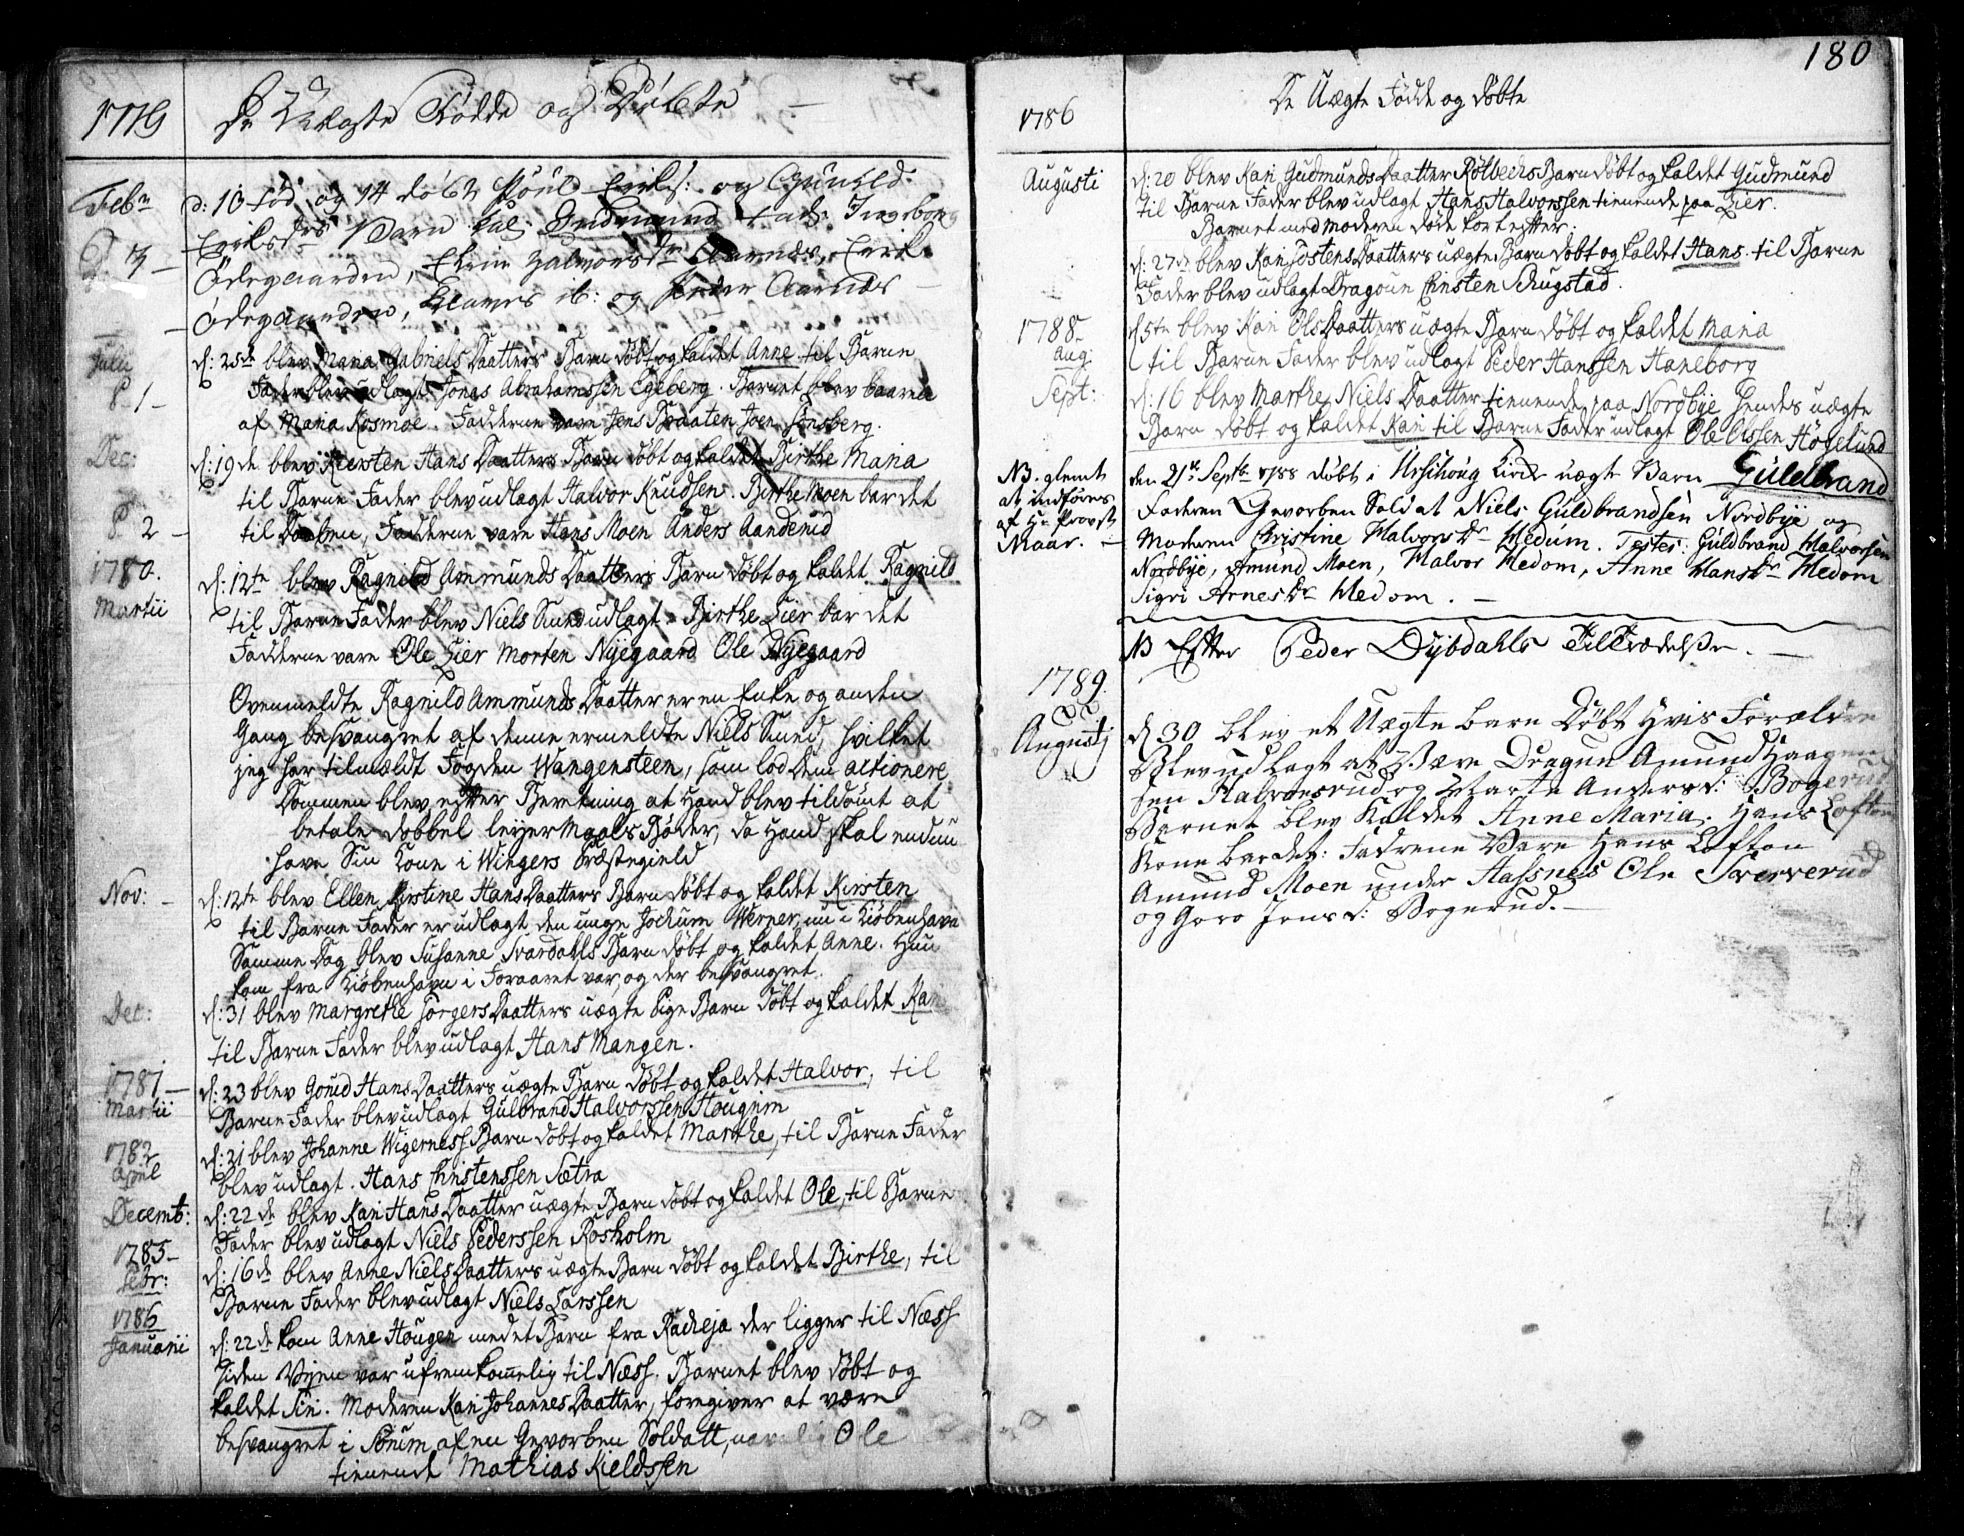 1779
De Uægte Fødde og Døbte
Febr.
d: 10 fød og 14 døbt Poul Eriks: og Gunild
Eriksdr Barn kal: Gudmund fad: Ingeborg
D. 3 —
Ødegaarden, Eline Halvorsdr Aarnæs, Erik
Ødegaarden, ib: og Peder Aarnæs
Julii
d: 25de blev Maria Gabriels Daatters Barn døbt og kaldet Anne til Barne
P. 1 —
Fader blev udlagt Jonas Abrahamssen Egeberg. Barnet blev baaren
af Maria Kosmoe. Fadderne vare Jens Braaten Joen Lensberg.
Dec:
d: 19de blev Kiersten Hans Daatters Barn døbt og kaldet Birthe Maria
til Barne Fader blev udlagt Halvor Knudsen. Birthe Moen bar det
P. 2 —
til Daaben, Fadderne vare Hans Moen Anders Aanderud
1780.
d: 12te blev Ragnild Ammunds Daatters Barn døbt og kaldet Ragnild
Martii
til Barne Fader blev Niels Smed udlagt. Birthe Lier bar det
Fadderne vare Ole Lier Morten Nyegaard Ole Nyegaard
Ovenmeldte Ragnild Ammunds Daatter er en Enke og anden
Gang besvangret af denne ermeldte Niels Smed, hvilket
jeg har tilmældt Fogden Wangensteen, som lod dem actionere
Dommen blev efter Beretning at Hand blev tildømt at
betale dobbel leyermaals Bøder, da Hand skal endnu
have Sin Kone i Wingers Præstegield
Nov: —
d: 12te blev Ellen Kirstine Hans Daatters Barn døbt og kaldet Kirsten
til Barne Fader er udlagt den unge Jochum Werner, nu i Kiøbenhavn
Samme Dag blev Susanne Svardahls Barn døbt og kaldet Anne. Hun
kom fra Kiøbenhavn i Foraaret var, og der besvangret.
Dec:
d: 31 blev Margrethe Torgers Daatters uægte Pige Barn døbt og kaldet Kari
til Barne Fader blev udlagt Hans Mangen.
1781 —
d: 23 blev Goud Hans Daatters uægte Barn døbt og kaldet Halvor, til
Martii
Barne Fader blev udlagt Gulbrand Halvorssen Hougerm
1782
d: 21 blev Johanne Wigerness Barn døbt og kaldet Marthe, til Barne Fader
April
blev udlagt. Hans Christenssen Sætra
Decemb:
d: 22de blev Kari Hans Daatter uægte Barn døbt og kaldet Ole, til Barne
Fader blev udlagt Niels Pederssen Rosholm
1785 —
d: 16de blev Anne Niels Daatters uægte Barn døbt og kaldet Birthe, til
Febr:
Barne Fader blev udlagt Niels Larssen
1786
d: 22de kom Anne Hougen med et Barn fra Kackeja der ligger til Næss
Januarii
siden Vejen var ufremkommelig til Næss. Barnet blev døbt og
kaldet Siri. Moderen Kari Johannes Daatter, foregiver at være
besvangret i Sørum af en Gevorben Soldatt, navnlig Ole
tienende Mathias Kieldssen
180
1786
De Uægte Fødde og døbte
Augusti
d: 20 blev Kari Gudmunds Daatter Kølbechs Barn døbt og kaldet Gudmund
til Barne Fader blev udlagt Hans Halvorssen tienende paa Lier.
Barnet med Moderen døde kort efter.
d: 27de blev Kari Jostens Daatters uægte Barn døbt og kaldet Hans. til Barne
Fader blev udlagt Dragoun Christen Rugstad.
1788
d 5te blev Kari Ols Daatters uægte Barn døbt og kaldet Maria
Aug:
til Barne Fader blev udlagt Peder Hanssen Haneborg
Sept:
d: 16 blev Marthe Niels Daatter tienende paa Nordbye hendes uægte
Barn døbt og kaldet Kari til Barne Fader udlagt Ole Olssen Høgelund
NB. glemt
at indføres
af Hr Provst
Maar. —
den 21de Septb 1788 døbt i Urschoug Kirke uægte Barn Guldbrand
Faderen Gevorben Soldat Niels Guldbrandsen Nordbye og
Moderen Christine Halvorsdr Medum. Testes: Guldbrand Halvorsen
Nordbye, Amund Moen, Halvor Medom, Anne Hansdr Medom
Sigri Arnesdr Medom. —
NB Efter Peder Dybdahls Tiltrædelse. —
1789.
Augustj
d 30 blev et Uægte barn Døbt hvis Forældre
Blev udlagt at være Dragun Amund Haagen
sen Halvorsrud og Marte Andersd: Bogerud
Barnet blev kaldet Anne Maria. Hans Lofton
Kone bar det: Fadrene Vare Hans Lofton
Amund Moen under Hassnes Ole Sververud
og Goro Jensd: Bogerud. —